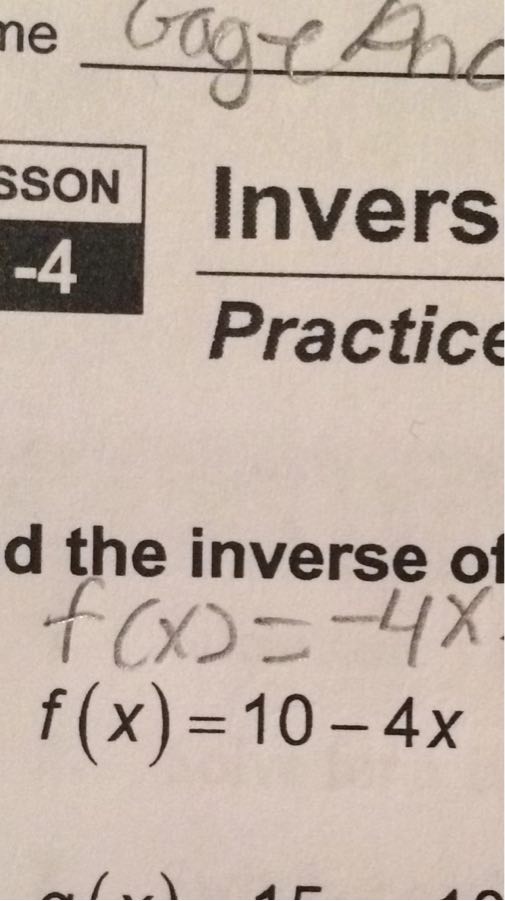 me Gage And
SSON
-4
Invers
Practice
d the inverse of
f(x) = -4x
f(x) = 10 – 4x